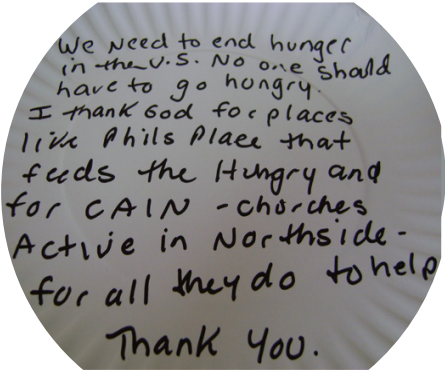 We Need to end hunger
in the U.S. No one should
have to go hungry.
I thank God for places
like Phils Place that
feeds the Hungry and
for CAIN - churches
Active in Northside -
for all they do to help
Thank You.